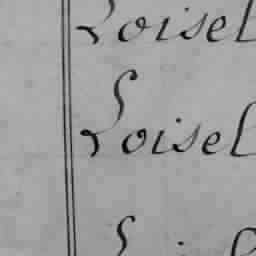 Loisel
Loisel